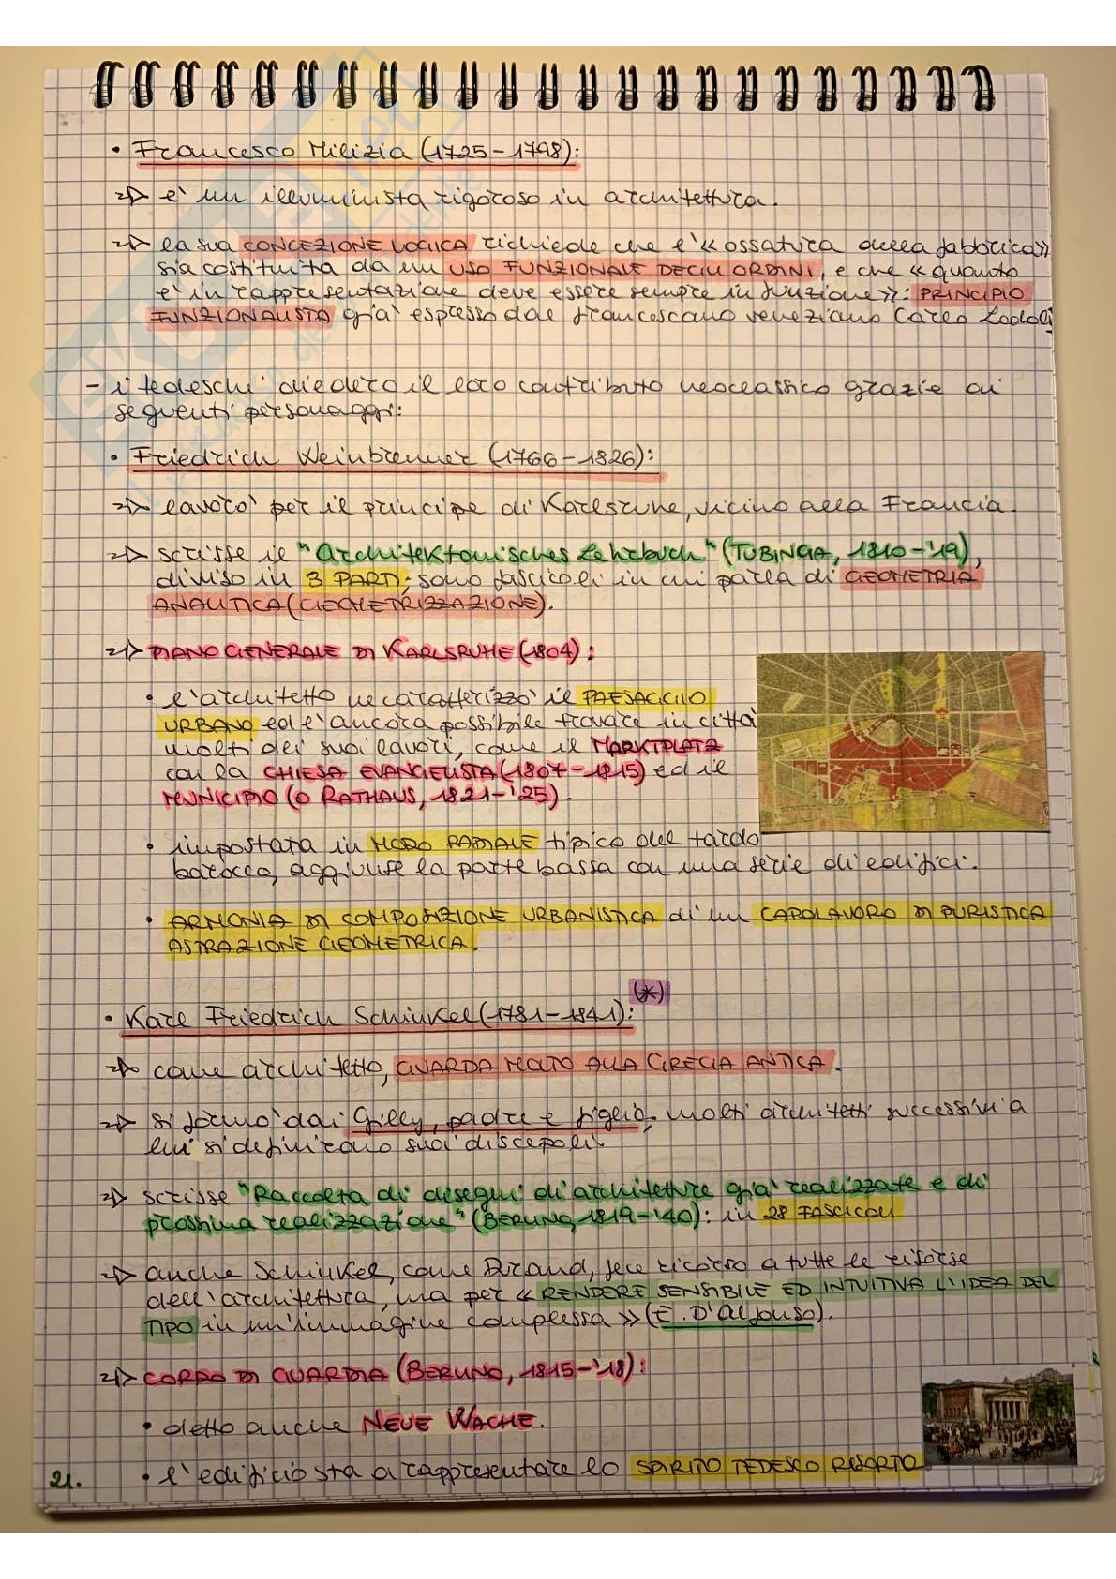 • Francesco Milizia (1725-1798):
=> e' un illuminista rigoroso in architettura.
=> la sua CONCEZIONE LOGICA richiede che l'«ossatura della fabbrica»
sia costituita da un USO FUNZIONALE DEGLI ORDINI, e che «quanto
e' in rappresentazione deve essere sempre in funzione»: PRINCIPIO
FUNZIONALISTA gia' espresso dal francescano veneziano Carlo Lodoli
- i tedeschi diedero il loro contributo neoclassico grazie ai
seguenti personaggi:
• Friedrich Weinbrenner (1766-1826):
=> lavoro' per il principe di Karlsruhe, vicino alla Francia.
=> scrisse il "Architektonisches Lehrbuch" (TUBINGA, 1810-'19),
diviso in 3 PARTI; sono fascicoli in cui parla di GEOMETRIA
ANALITICA (GEOMETRIZZAZIONE).
=> PIANO GENERALE DI KARLSRUHE (1804):
• l'architetto ne caratterizzo' il PAESAGGIO
URBANO ed e' ancora possibile trovare in citta'
molti dei suoi lavori, come il MARKTPLATZ
con la CHIESA EVANGELISTA (1807-1815) ed il
MUNICIPIO (o RATHAUS, 1821-'25)
• impostata in MODO RADIALE tipico del tardo
barocco, aggiunse la parte bassa con una serie di edifici.
• ARMONIA DI COMPOSIZIONE URBANISTICA di un CAPOLAVORO DI PURISTICA
ASTRAZIONE GEOMETRICA.
• Karl Friedrich Schinkel (1781-1841): (*)
=> come architetto, GUARDA MOLTO ALLA GRECIA ANTICA.
=> si formo' dai Gilly, padre e figlio; molti architetti successivi a
lui si definirono suoi discepoli.
=> scrisse "Raccolta di disegni di architetture gia' realizzate e di
prossima realizzazione" (BERLINO, 1819-'40): in 28 FASCICOLI
=> anche Schinkel, come Durand, fece ricorso a tutte le risorse
dell'architettura, ma per «RENDERE SENSIBILE ED INTUITIVA L'IDEA DEL
TIPO in un'immagine complessa» (E. D'Alfonso).
=> CORPO DI GUARDIA (BERLINO, 1815-'18):
• detto anche NEUE WACHE.
• l'edificio sta a rappresentare lo SPIRITO TEDESCO RISORTO
21.